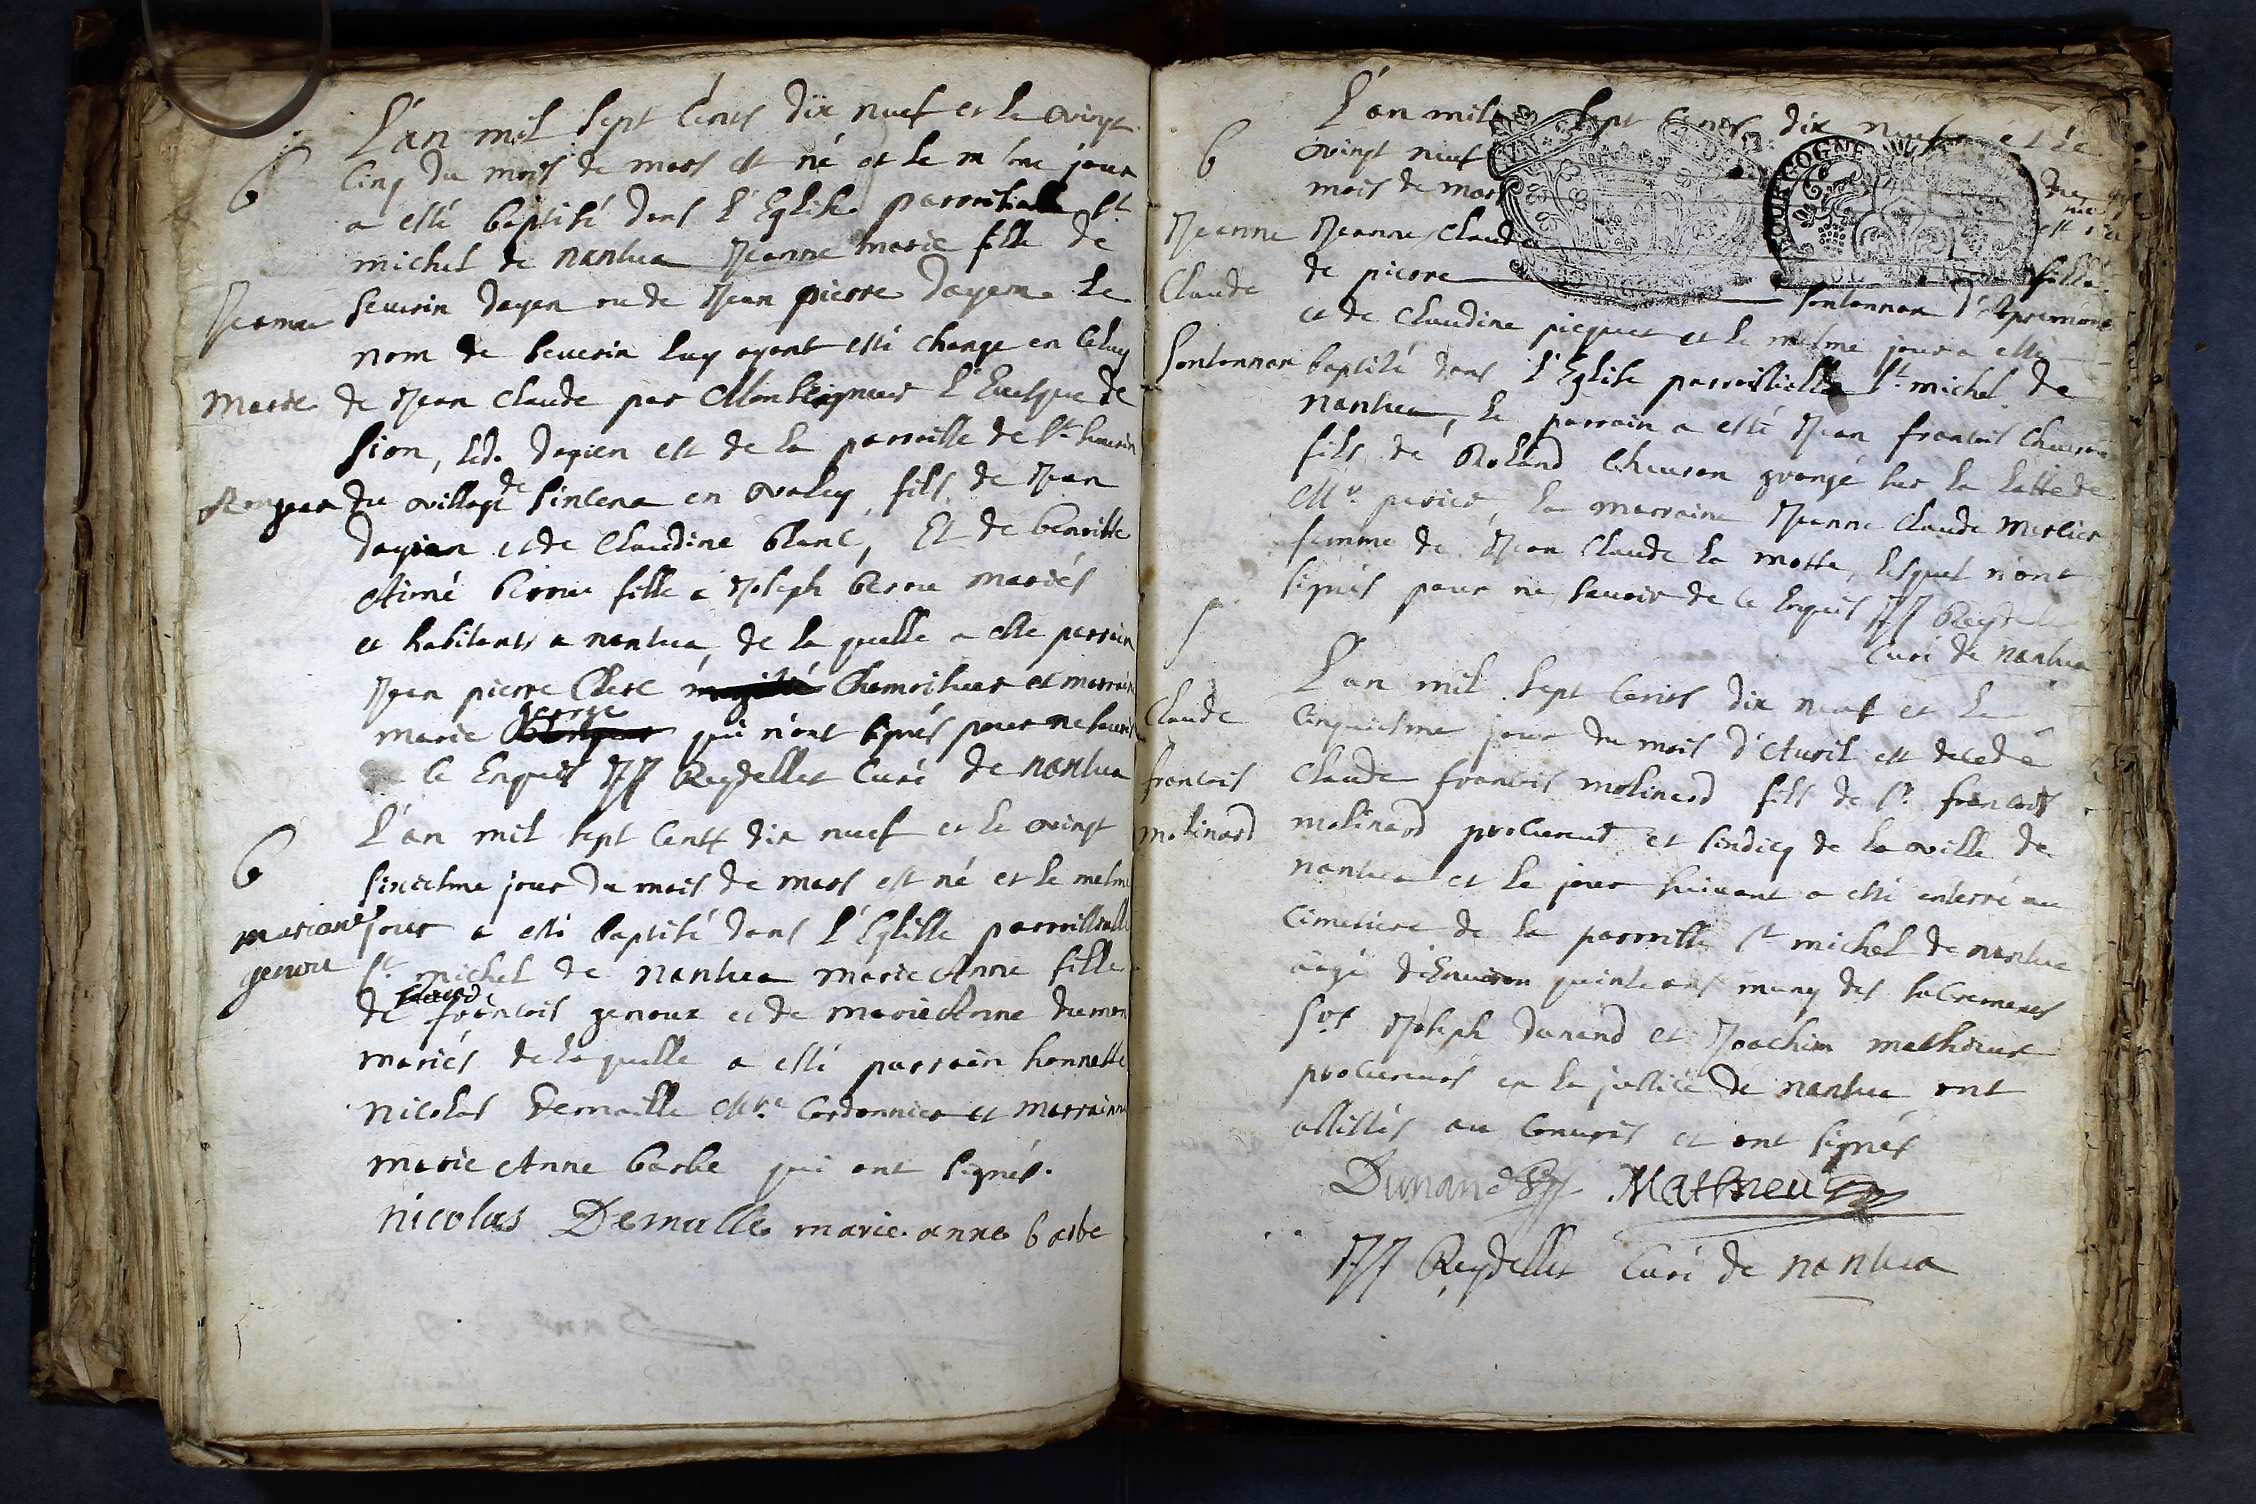 L'an mil sept cents dix neuf et le vingt
b
cinq du mois de mars est né et le mesme jour
a esté baptisé dans l'Eglise parroissialle St
michel de nantua Jeanne marie fille de
Jeanne
Severin dayen ou de Jean pierre dayen le
nom de Severin luy ayant esté change en celuy
marie
de Jean Claude par Monseigneur l'Evesque de
Sion, led. dayien est de la parroisse de St Severin
du village de Sinlena en valey, fils de Jean
dayien et de Claudine blanc, Et de benoitte
Aimé berrou fille a Joseph berrou mariés
et habitants a nantua, de la quelle a esté parrain
Jean pierre Clerc Chamoiseur et marraine
marie george qui n'ont signés pour ne savoir
de ce Enquis JJ Reydellet Curé de nantua
L'an mil sept cents dix neuf et le vingt
b
sixiesme jour du mois de mars est né et le mesme
mariane
jour a esté baptisé dans l'Eglisse parroissialle
genou
St michel de nantua marie Anne fille
de francois genoux et de marie Anne dumon
mariés de la quelle a esté parrain honnette
nicolas Demaille Mre Cordonnier et marrainne
marie Anne barbe qui ont signés.
nicolas Demalle marie anne barbe
L'an mil sept cents dix neuf et le
b
vingt neuf du
mois de mars est née
Jeanne
Jeanne Claude fille
Claude
de pierre Sonlonnan d'Apremont
et de Claudine picquet et le mesme jour a esté
Sonlonnan
baptisé dans l'Eglise parroissielle St michel de
nantua, le parrain a esté Jean francois Chavson
fils de Roland Chauson grangé sur la latte de
Mr perier, la marraine Jeanne Claude Mercier
femme de Jean Claude la motte, lesquel n'ont
signés pour ne savoir de ce Enquis JJ Reydellet
Curé de nantua
L'an mil sept cents dix neuf et le
Claude
cinquiesme jour du mois d'Avril est decedé
francois
Claude francois molinard fils de Sr francois
molinard
molinard procureur et sindicq de la ville de
nantua et le jour suivant a esté enterré au
cimetiere de la parroisse St michel de nantua
aagé d'Environ quinse ans muny des sacrements
Srs Joseph dunand et Joachim mathieux
procureurs en la justice de nantua ont
assistés au convois et ont signés
Dunand Mathieu
JJ Reydellet Curé de nantua